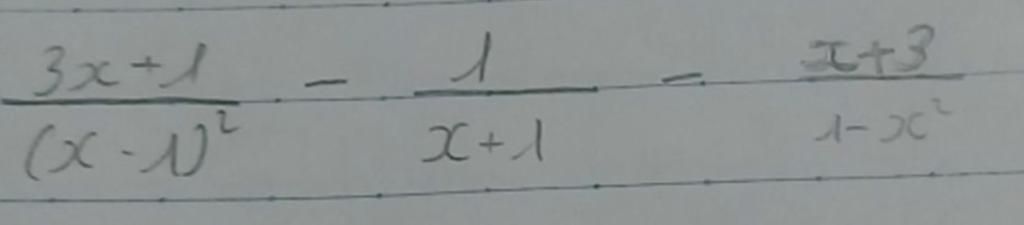 \frac{3x+1}{(x-1)^2} - \frac{1}{x+1} - \frac{x+3}{1-x^2}